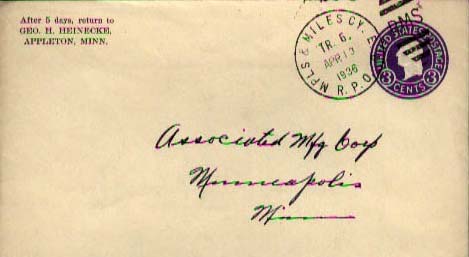 After 5 days, return to
GEO. H. HEINECKE,
APPLETON, MINN.
MPLS & MILES CY. E.
TR. 6.
APR 13
1936
R.P.O.
RMS
UNITED STATES POSTAGE
3 CENTS 3
Associated Mfg Corp
Minneapolis
Minn